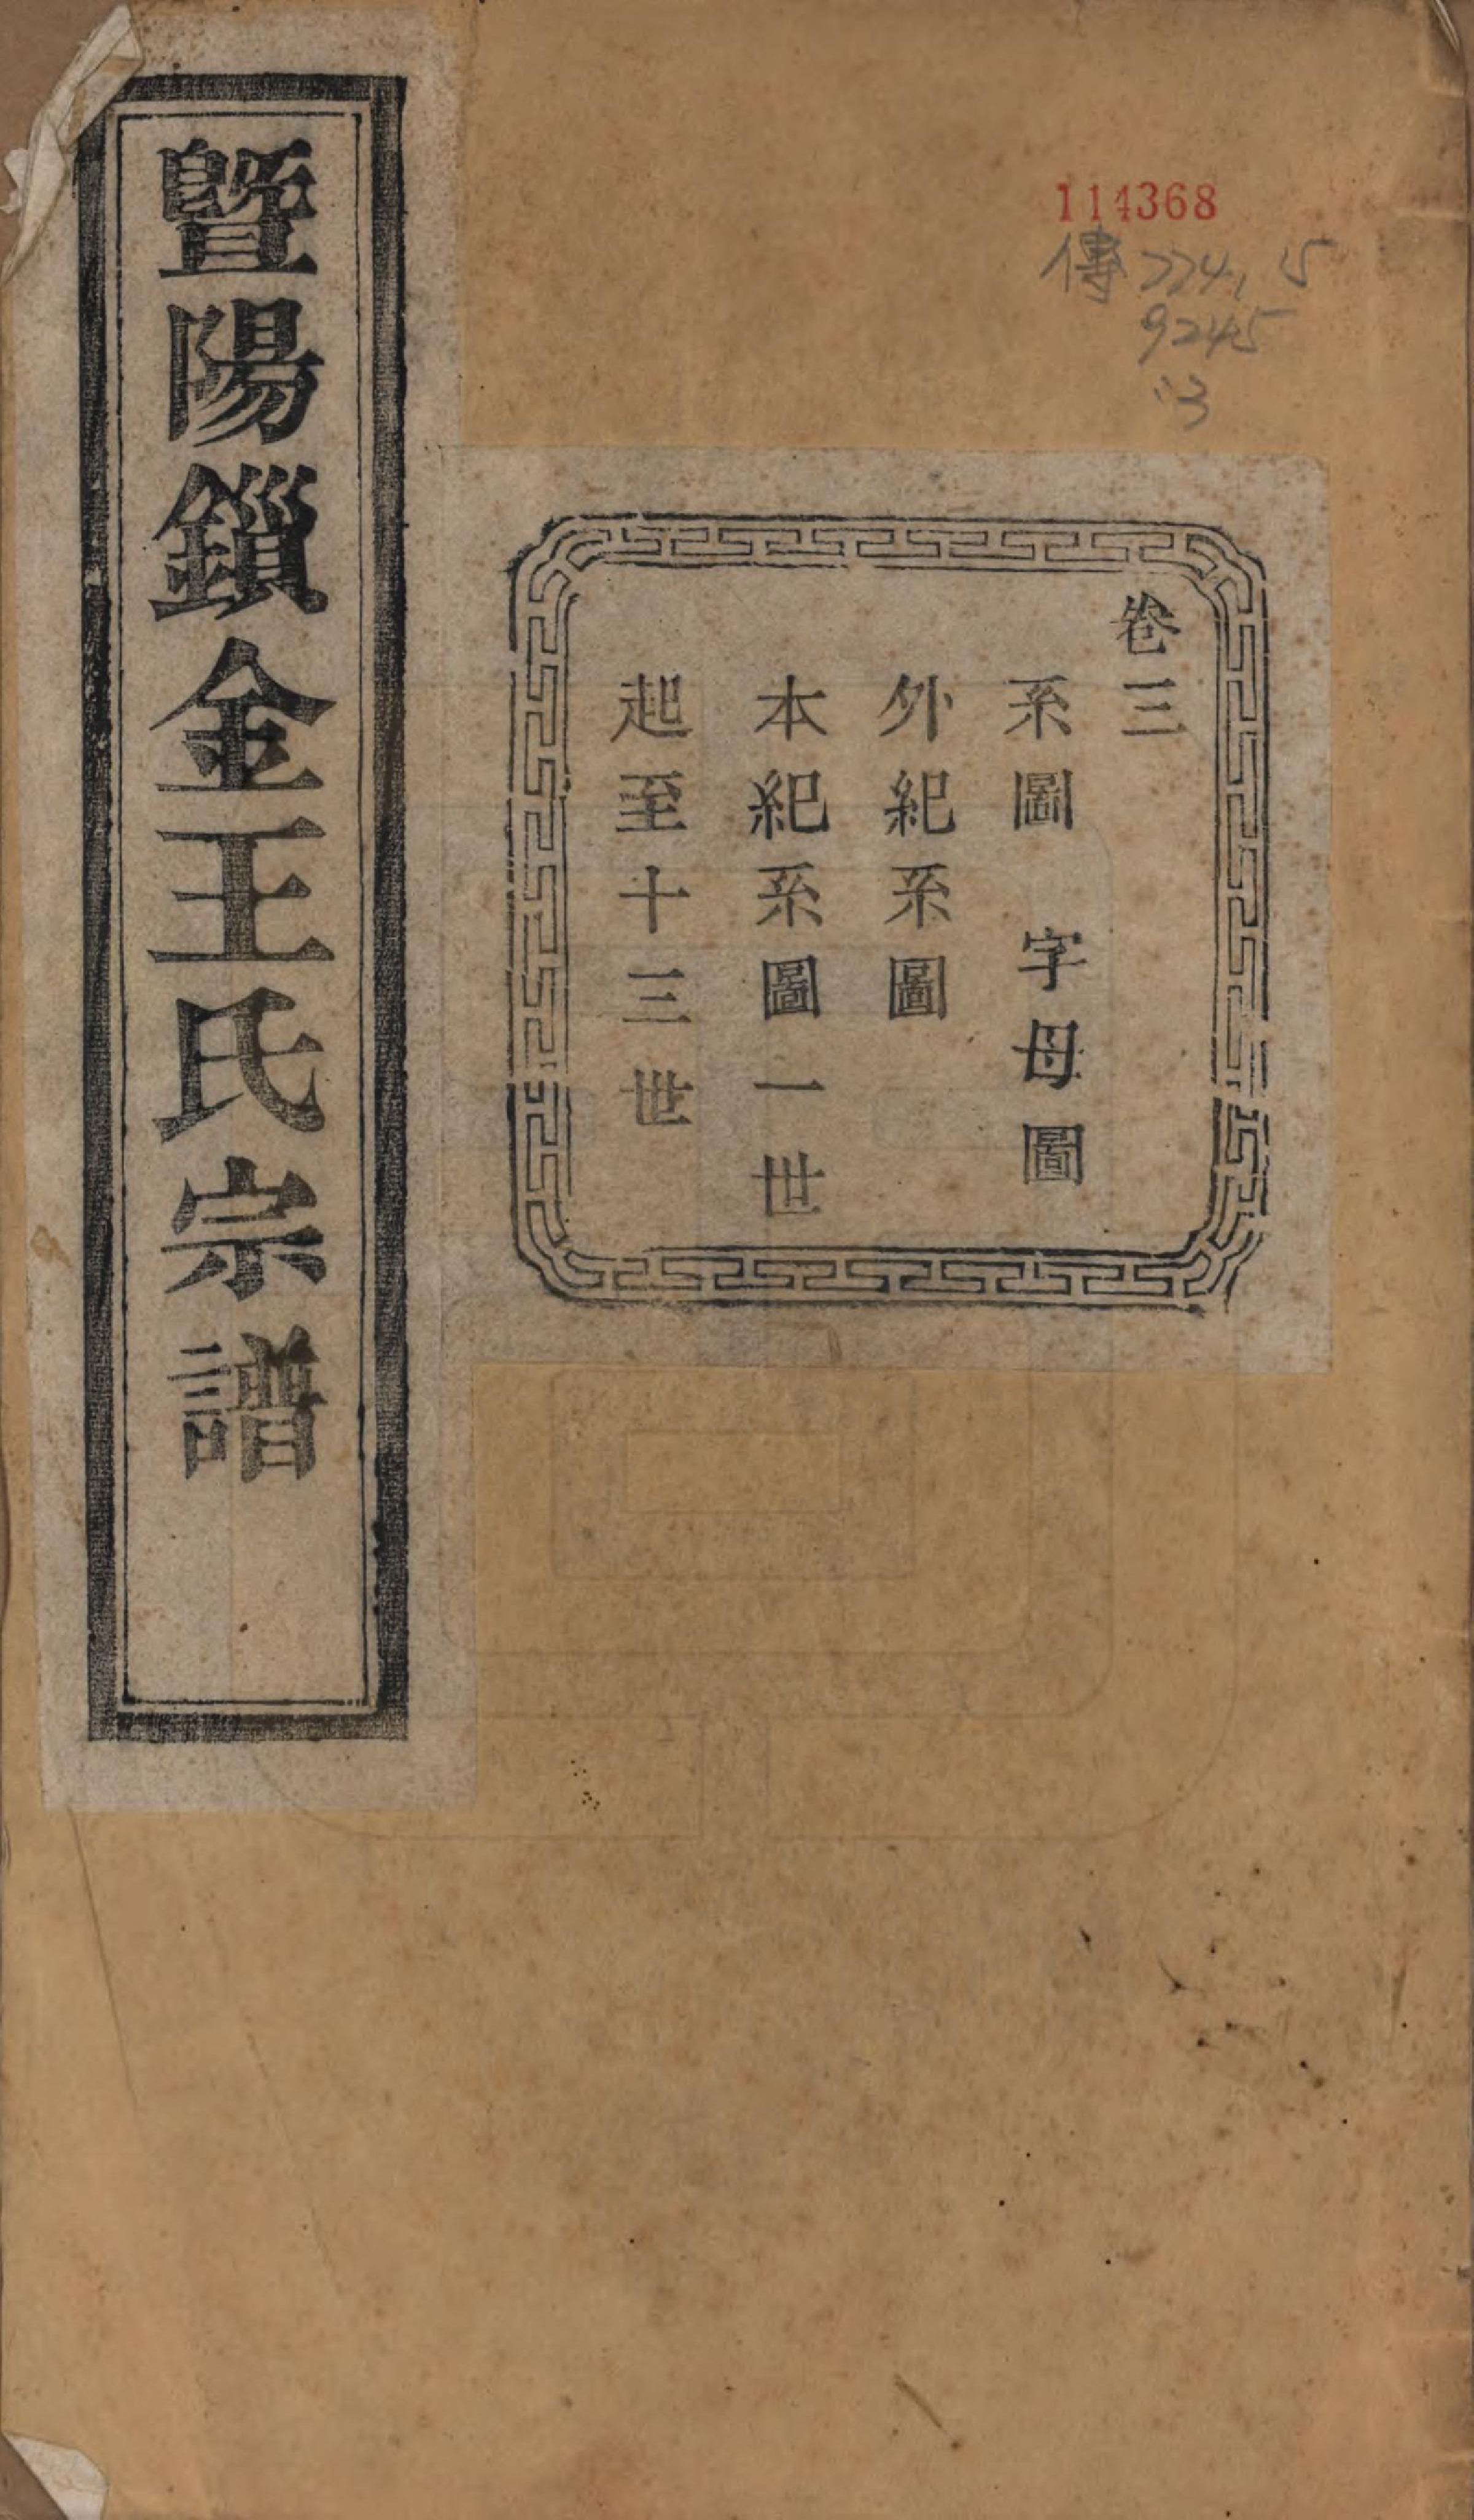 114368
傳 774.15
9245
:3
卷三
系圖 字母圖
外紀系圖
本紀系圖一世
起至十三世
暨陽鎖金王氏宗譜